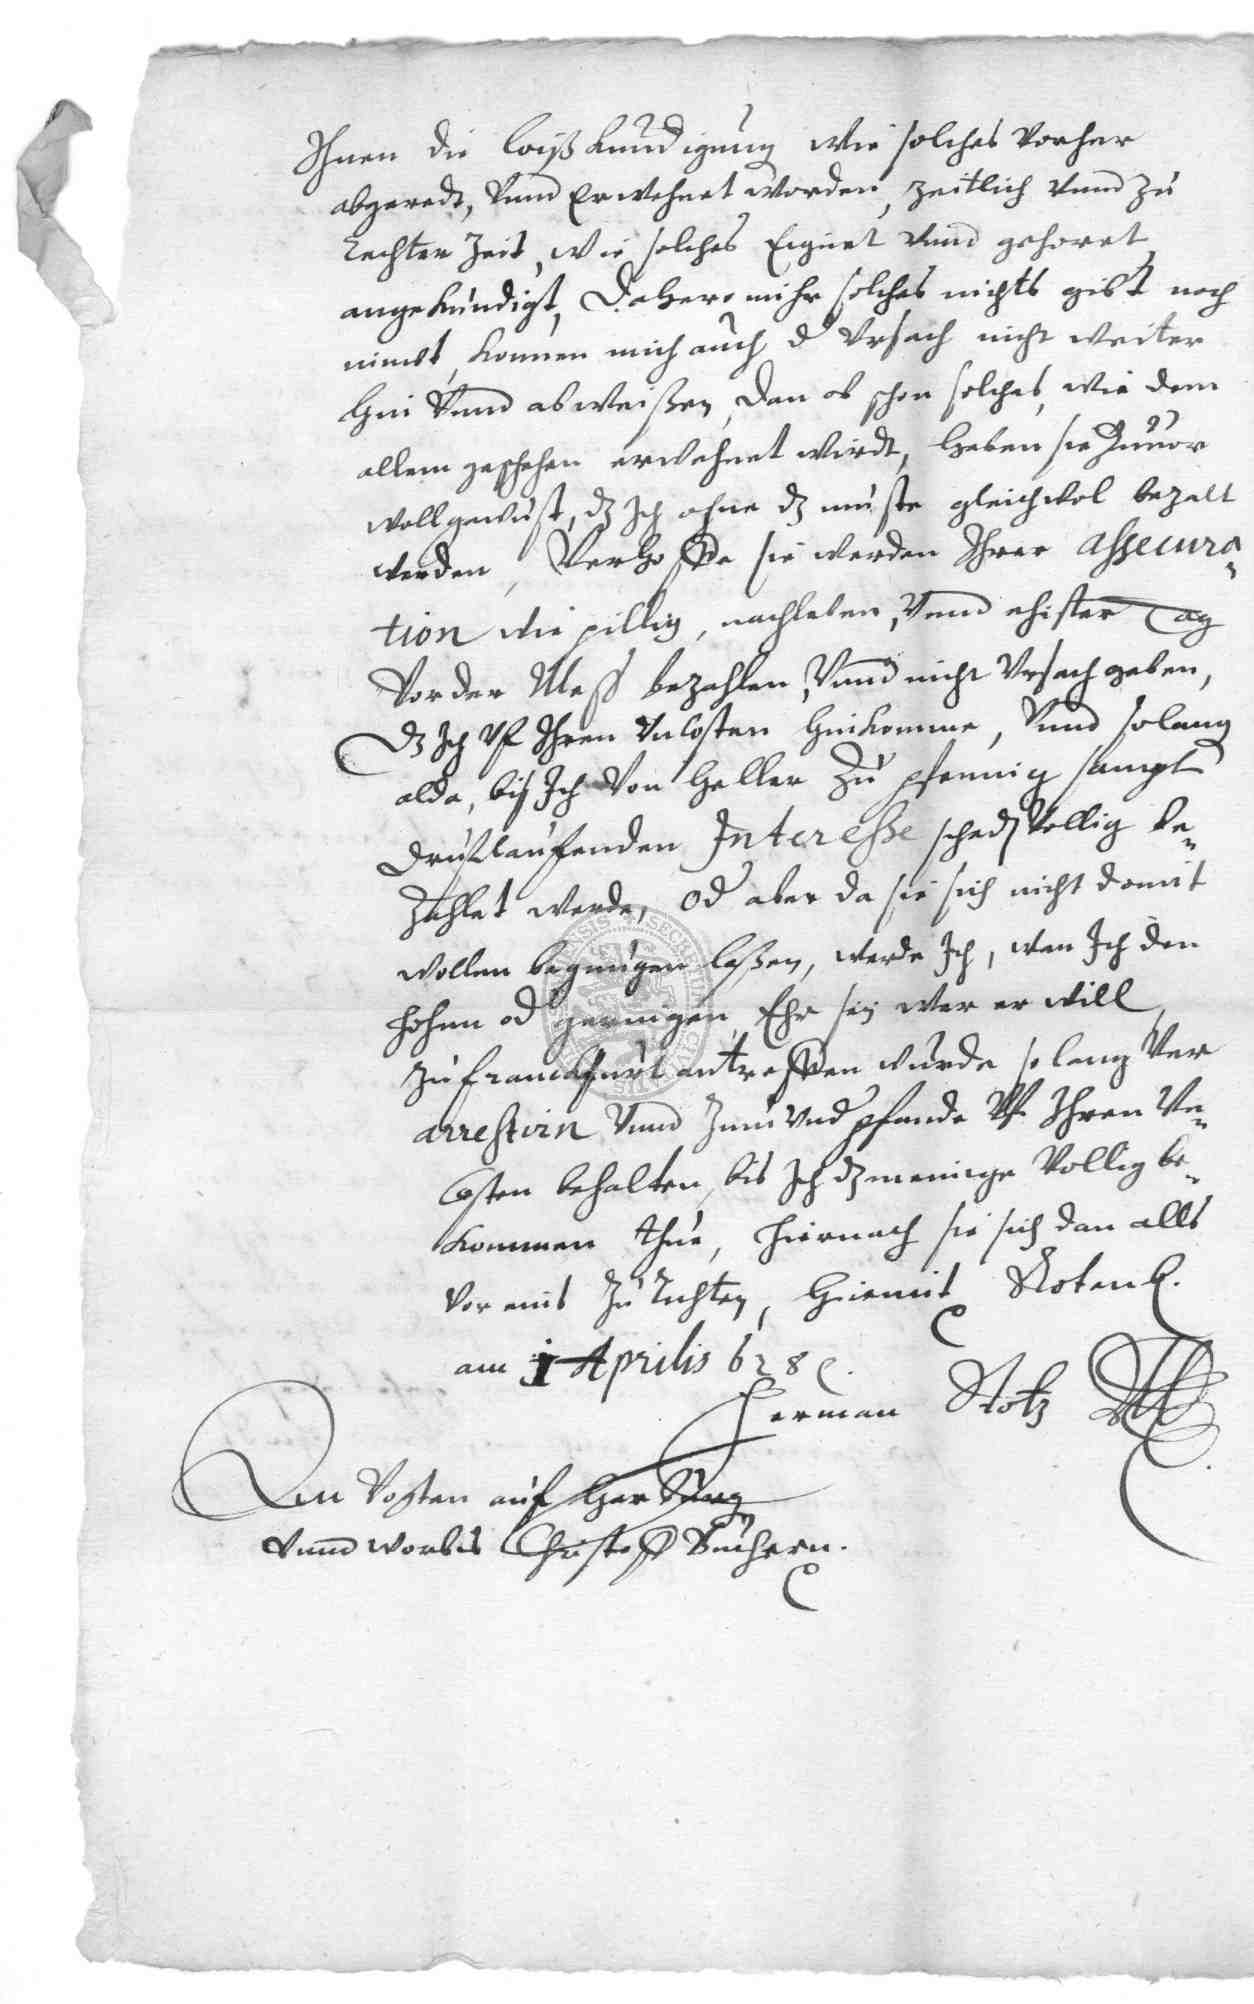 Ihnen die loiß Kundigung wie solches vorher
abgeredt, Vnnd Erwehnet worden, zeitlich vnnd zu
rechter Zeit, wie solches Eignet vnnd gehoret
angekundigt, Dahero mihr solches nichts gibt noch
nimbt, konnen mich auch d Vrsach nicht weiter
hin Vnnd abweißen, Dan ob schon solches, wie dem
allem geschehen erwehnet wirdt, haben sie Zuuor
woll gewust, dz Ich ohne dz muste gleichwol bezalt
werden, Verhoffe sie werden Ihrer assecura-
tion wie pillig, nachleben, Vnnd ehister Tag
Vor der Meß bezahlen, Vnnd nicht Vrsach geben,
Dz Ich Vf Ihren Vncosten hinkomme, Vnnd solang
alda, biß Ich Von heller Zu pfennig sampt
drufflaufenden Interesse schadz Vollig be-
Zahlet werde, od aber da sie sich nicht domit
wollen begnugen laßen, werde Ich, wan Ich den
hohen od geringen, Ehr sey wer er will,
zu franckfurt antreffen wurde so lang Ver
arrestirn Vnnd Zum Vnd pfande Vf Ihren Vn-
Costen behalten, bis Ich dz meinige Vollig be-
kommen thue, hiernach sie sich dan alls
vor eins Zu richten, hiemit
am 1 Aprilis 628
Herman Stotz
Den Vogten auf Harburg
vnnd worbis Christoff Buchern.